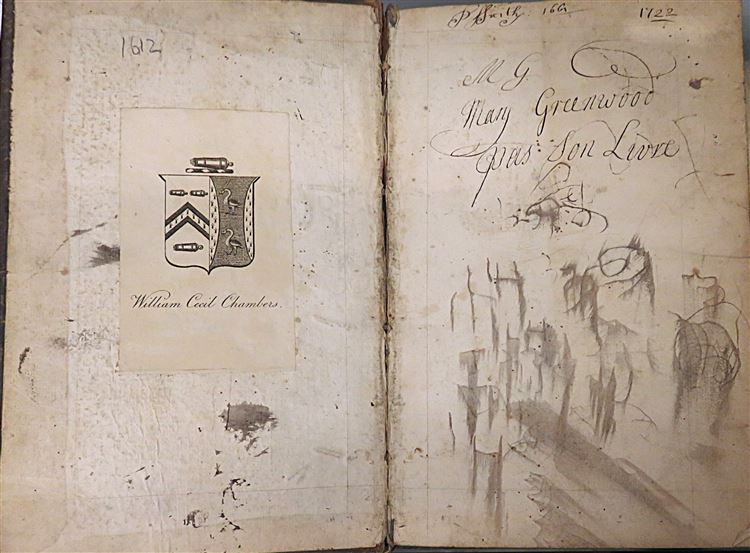 1612
William Cecil Chambers.
Smith. 166
1722
M G
Mary Greenwood
pas Son Livre